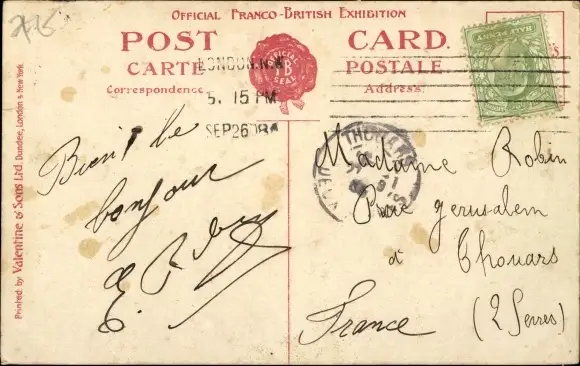 OFFICIAL FRANCO-BRITISH EXHIBITION
POST CARD.
CARTE POSTALE
Correspondence Address.
OFFICIAL
FB
SEAL
HALF PENNY
LONDON.N.W
5.15 PM
SEP 26 08
THOUARS
Printed by Valentine & Sons Ltd. Dundee, London & New York
bonjour
Madame Robin
Rue Jerusalem
à Thouars
(2 Sevres)
France